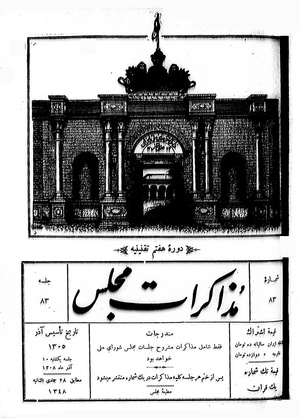 دورهٔ هفتم تقنینیه
جلسه
۸۳
مذاکرات مجلس
شماره
۸۳
تاریخ تأسیس آذر
۱۳۰۵
جلسه یکشنبه ۱۰
آذر ماه ۱۳۰۸
مطابق ۲۸ جمادی الثانیه
۱۳۴۸
مندرجات
فقط شامل مذاکرات مشروح جلسات مجلس شورای ملی
خواهد بود
پس از ختم هر جلسه کلیه مذاکرات در یک شماره منتشر میشود
مطبعهٔ مجلس
قیمة اشتراك
ایران سالیانه ده تومان
خارجه دوازده تومان
قیمة تك شماره
یك قران